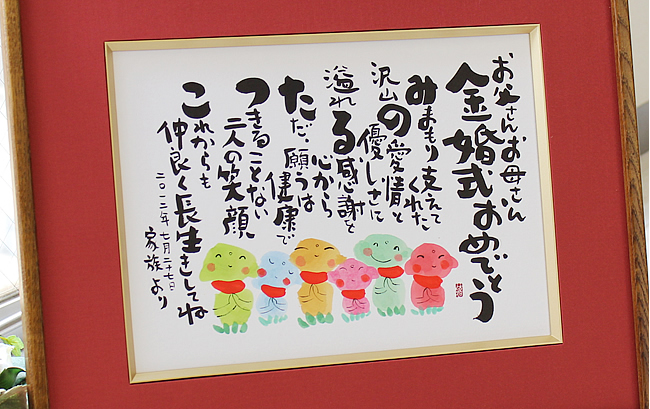 お父さんお母さん
金婚式おめでとう
みまもり支えて
くれた
沢山の愛情と
優しさに
溢れる感謝を
心から
ただ、願うは
健康で
つきることない
二人の笑顔
これからも
仲良く長生きしてね
二〇一二年七月二十七日
家族より